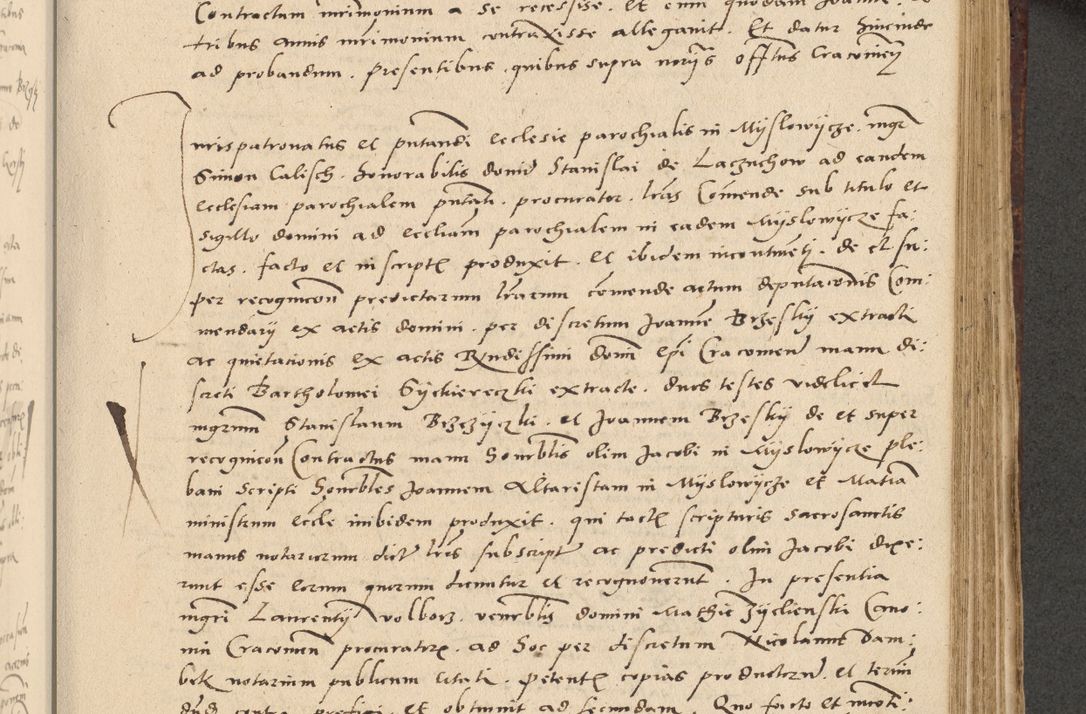 Contractum mrimonium a se recessisse. Et enim quodam
tribus annis mrimonium contraxisse allegauit. Et datur hincinde
ad probandum. presentibus quibus supra norijs offtus Cracouien
Jurispatronatus et putandi ecclesie parochialis in Myslowijcze. mgr
Simon Calisch. honorabilis domi Stanislai de Laczuchow ad eandem
ecclesiam parochialem pntati. procurator. lras Comende sub titulo et
sigillo domini ad eccliam parochialem in eadem Myslowijcze fa:
ctas. facto et in script produxit. Et ibidem incontinenti. de et su:
per recognicon predictarum lrarum comende actum deputacionis Com:
mendarij ex actis domini. per discretum Joanne Brzeskij extracti
ac quietacionis ex actis Rndissimi domi epi Cracouien manu di:
screti Bartholomei Gyckiereczki extracte. duos testes videlicet
mgrum Stanislaum Brzezijczki. et Joannem Brzeskij de et super
recognicon Contractus manu honrblis olim Jacobi in Myslowijcze ple:
bani scripti honrbles Joannem Altaristam in Myslowijcze et Matia
ministrum eccle inibidem produxit. qui tact scripturis sacrosanctis
manus notariorum dict lris subscript ac predicti olim Jacobi dixe:
runt esse eorum quorum dicuntur et recognouerunt. In presentia
mgri Laurentij Volborz. venrblis domini Mathie Zyclienski Cano:
nici Cracouien procurator. ad hoc per discretum Nicolaum Dam:
bek notarium publicum citati. petent copias productorum. et termi
dnd contra prefigi. et obtinuit ad secundam. Quo facto et